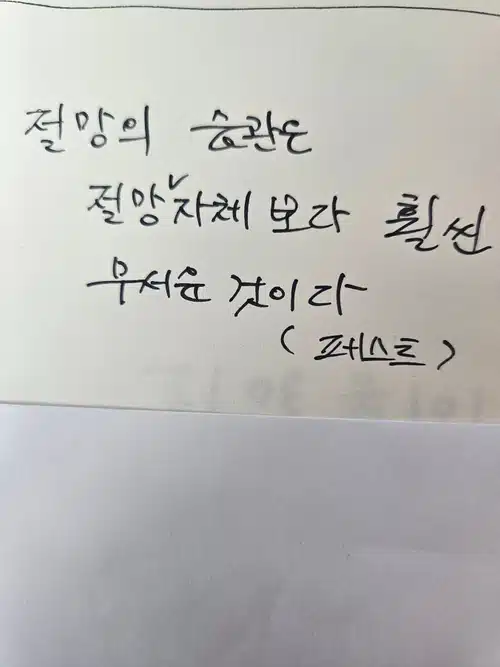 절망의 습관은
절망✓자체보다 훨씬
무서운 것이다
(페스트)